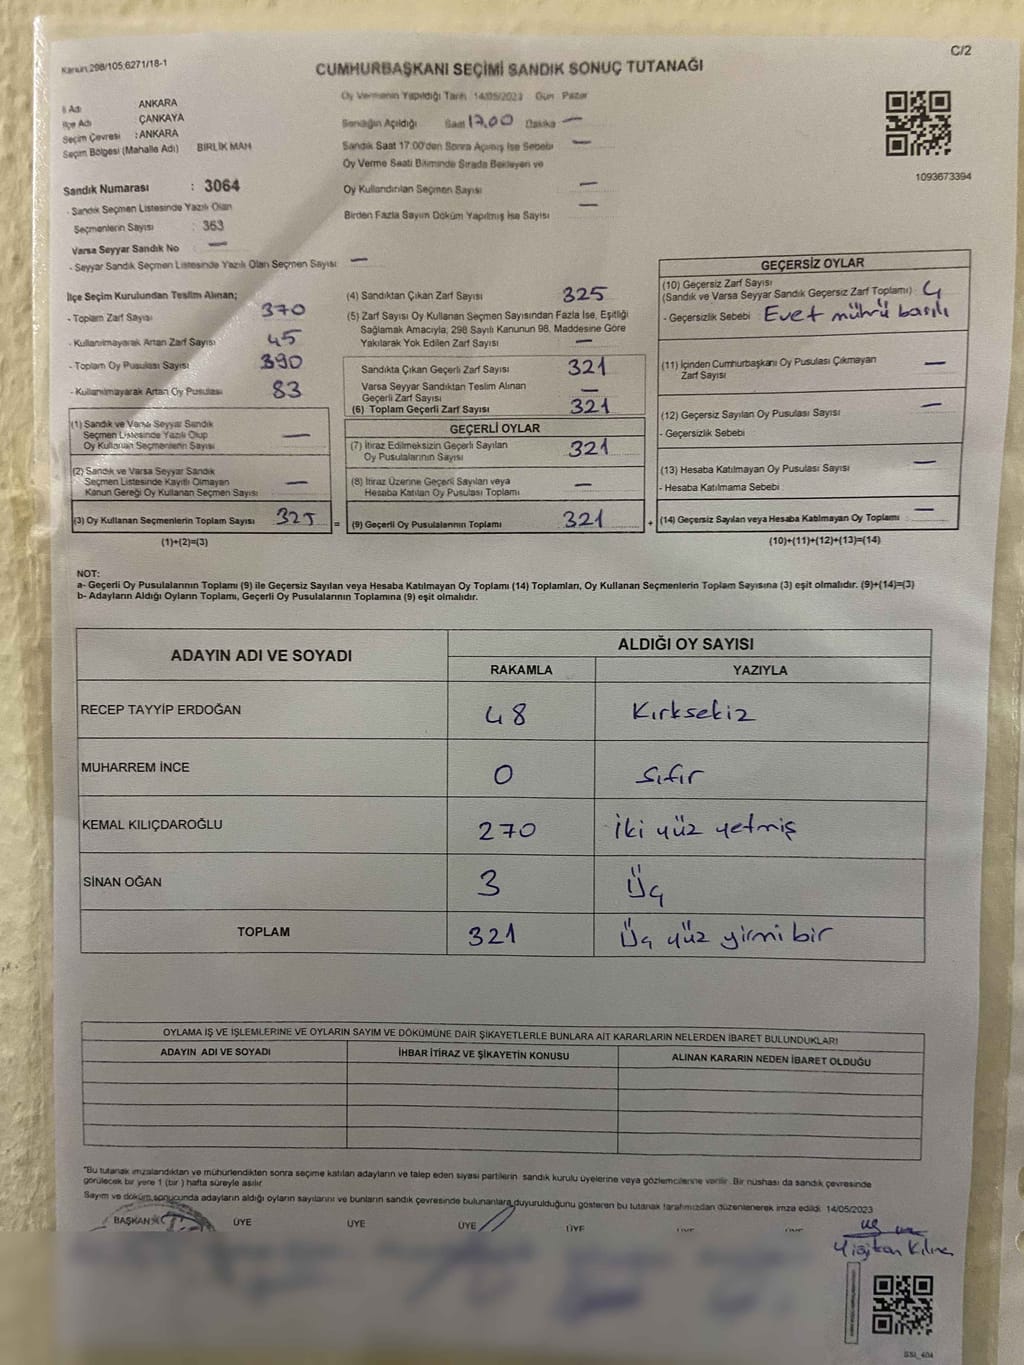 C/2
Kanun:298/105;6271/18-1
CUMHURBAŞKANI SEÇİMİ SANDIK SONUÇ TUTANAĞI
İl Adı ANKARA
İlçe Adı ÇANKAYA
Seçim Çevresi : ANKARA
Seçim Bölgesi (Mahalle Adı) BİRLİK MAH
Oy Vermenin Yapıldığı Tarih 14/05/2023 Gün Pazar
Sandığın Açıldığı Saat 17.00 Dakika —
Sandık Saat 17:00'den Sonra Açılmış İse Sebebi —
Oy Verme Saati Bitiminde Sırada Bekleyen ve
Oy Kullandırılan Seçmen Sayısı —
Birden Fazla Sayım Döküm Yapılmış İse Sayısı —
1093673394
Sandık Numarası : 3064
- Sandık Seçmen Listesinde Yazılı Olan
Seçmenlerin Sayısı : 363
Varsa Seyyar Sandık No —
- Seyyar Sandık Seçmen Listesinde Yazılı Olan Seçmen Sayısı: —
İlçe Seçim Kurulundan Teslim Alınan;
- Toplam Zarf Sayısı 370
- Kullanılmayarak Artan Zarf Sayısı 45
- Toplam Oy Pusulası Sayısı 390
- Kullanılmayarak Artan Oy Pusulası 83
(1) Sandık ve Varsa Seyyar Sandık
Seçmen Listesinde Yazılı Olup
Oy Kullanan Seçmenlerin Sayısı —
(2) Sandık ve Varsa Seyyar Sandık
Seçmen Listesinde Kayıtlı Olmayan
Kanun Gereği Oy Kullanan Seçmen Sayısı —
(3) Oy Kullanan Seçmenlerin Toplam Sayısı 325 =
(1)+(2)=(3)
(4) Sandıktan Çıkan Zarf Sayısı 325
(5) Zarf Sayısı Oy Kullanan Seçmen Sayısından Fazla İse, Eşitliği
Sağlamak Amacıyla, 298 Sayılı Kanunun 98. Maddesine Göre
Yakılarak Yok Edilen Zarf Sayısı —
Sandıkta Çıkan Geçerli Zarf Sayısı 321
Varsa Seyyar Sandıktan Teslim Alınan
Geçerli Zarf Sayısı —
(6) Toplam Geçerli Zarf Sayısı 321
GEÇERLİ OYLAR
(7) İtiraz Edilmeksizin Geçerli Sayılan
Oy Pusulalarının Sayısı 321
(8) İtiraz Üzerine Geçerli Sayılan veya
Hesaba Katılan Oy Pusulası Toplamı —
(9) Geçerli Oy Pusulalarının Toplamı 321 +
GEÇERSİZ OYLAR
(10) Geçersiz Zarf Sayısı
(Sandık ve Varsa Seyyar Sandık Geçersiz Zarf Toplamı) : 4
- Geçersizlik Sebebi Evet mührü basılı
(11) İçinden Cumhurbaşkanı Oy Pusulası Çıkmayan
Zarf Sayısı —
(12) Geçersiz Sayılan Oy Pusulası Sayısı —
- Geçersizlik Sebebi
(13) Hesaba Katılmayan Oy Pusulası Sayısı —
- Hesaba Katılmama Sebebi
(14) Geçersiz Sayılan veya Hesaba Katılmayan Oy Toplamı —
(10)+(11)+(12)+(13)=(14)
NOT:
a- Geçerli Oy Pusulalarının Toplamı (9) ile Geçersiz Sayılan veya Hesaba Katılmayan Oy Toplamı (14) Toplamları, Oy Kullanan Seçmenlerin Toplam Sayısına (3) eşit olmalıdır. (9)+(14)=(3)
b- Adayların Aldığı Oyların Toplamı, Geçerli Oy Pusulalarının Toplamına (9) eşit olmalıdır.
ADAYIN ADI VE SOYADI ALDIĞI OY SAYISI
RAKAMLA YAZIYLA
RECEP TAYYİP ERDOĞAN 48 Kırksekiz
MUHARREM İNCE 0 Sıfır
KEMAL KILIÇDAROĞLU 270 İki yüz yetmiş
SİNAN OĞAN 3 Üç
TOPLAM 321 Üç yüz yirmi bir
OYLAMA İŞ VE İŞLEMLERİNE VE OYLARIN SAYIM VE DÖKÜMÜNE DAİR ŞİKAYETLERLE BUNLARA AİT KARARLARIN NELERDEN İBARET BULUNDUKLARI
ADAYIN ADI VE SOYADI İHBAR İTİRAZ VE ŞİKAYETİN KONUSU ALINAN KARARIN NEDEN İBARET OLDUĞU
*Bu tutanak imzalandıktan ve mühürlendikten sonra seçime katılan adayların ve talep eden siyasi partilerin sandık kurulu üyelerine veya gözlemcilerine verilir. Bir nüshası da sandık çevresinde
görülecek bir yere 1 (bir ) hafta süreyle asılır.
Sayım ve döküm sonucunda adayların aldığı oyların sayılarını ve bunların sandık çevresinde bulunanlara duyurulduğunu gösteren bu tutanak tarafımızdan düzenlenerek imza edildi. 14/05/2023
BAŞKAN ÜYE ÜYE ÜYE ÜYE